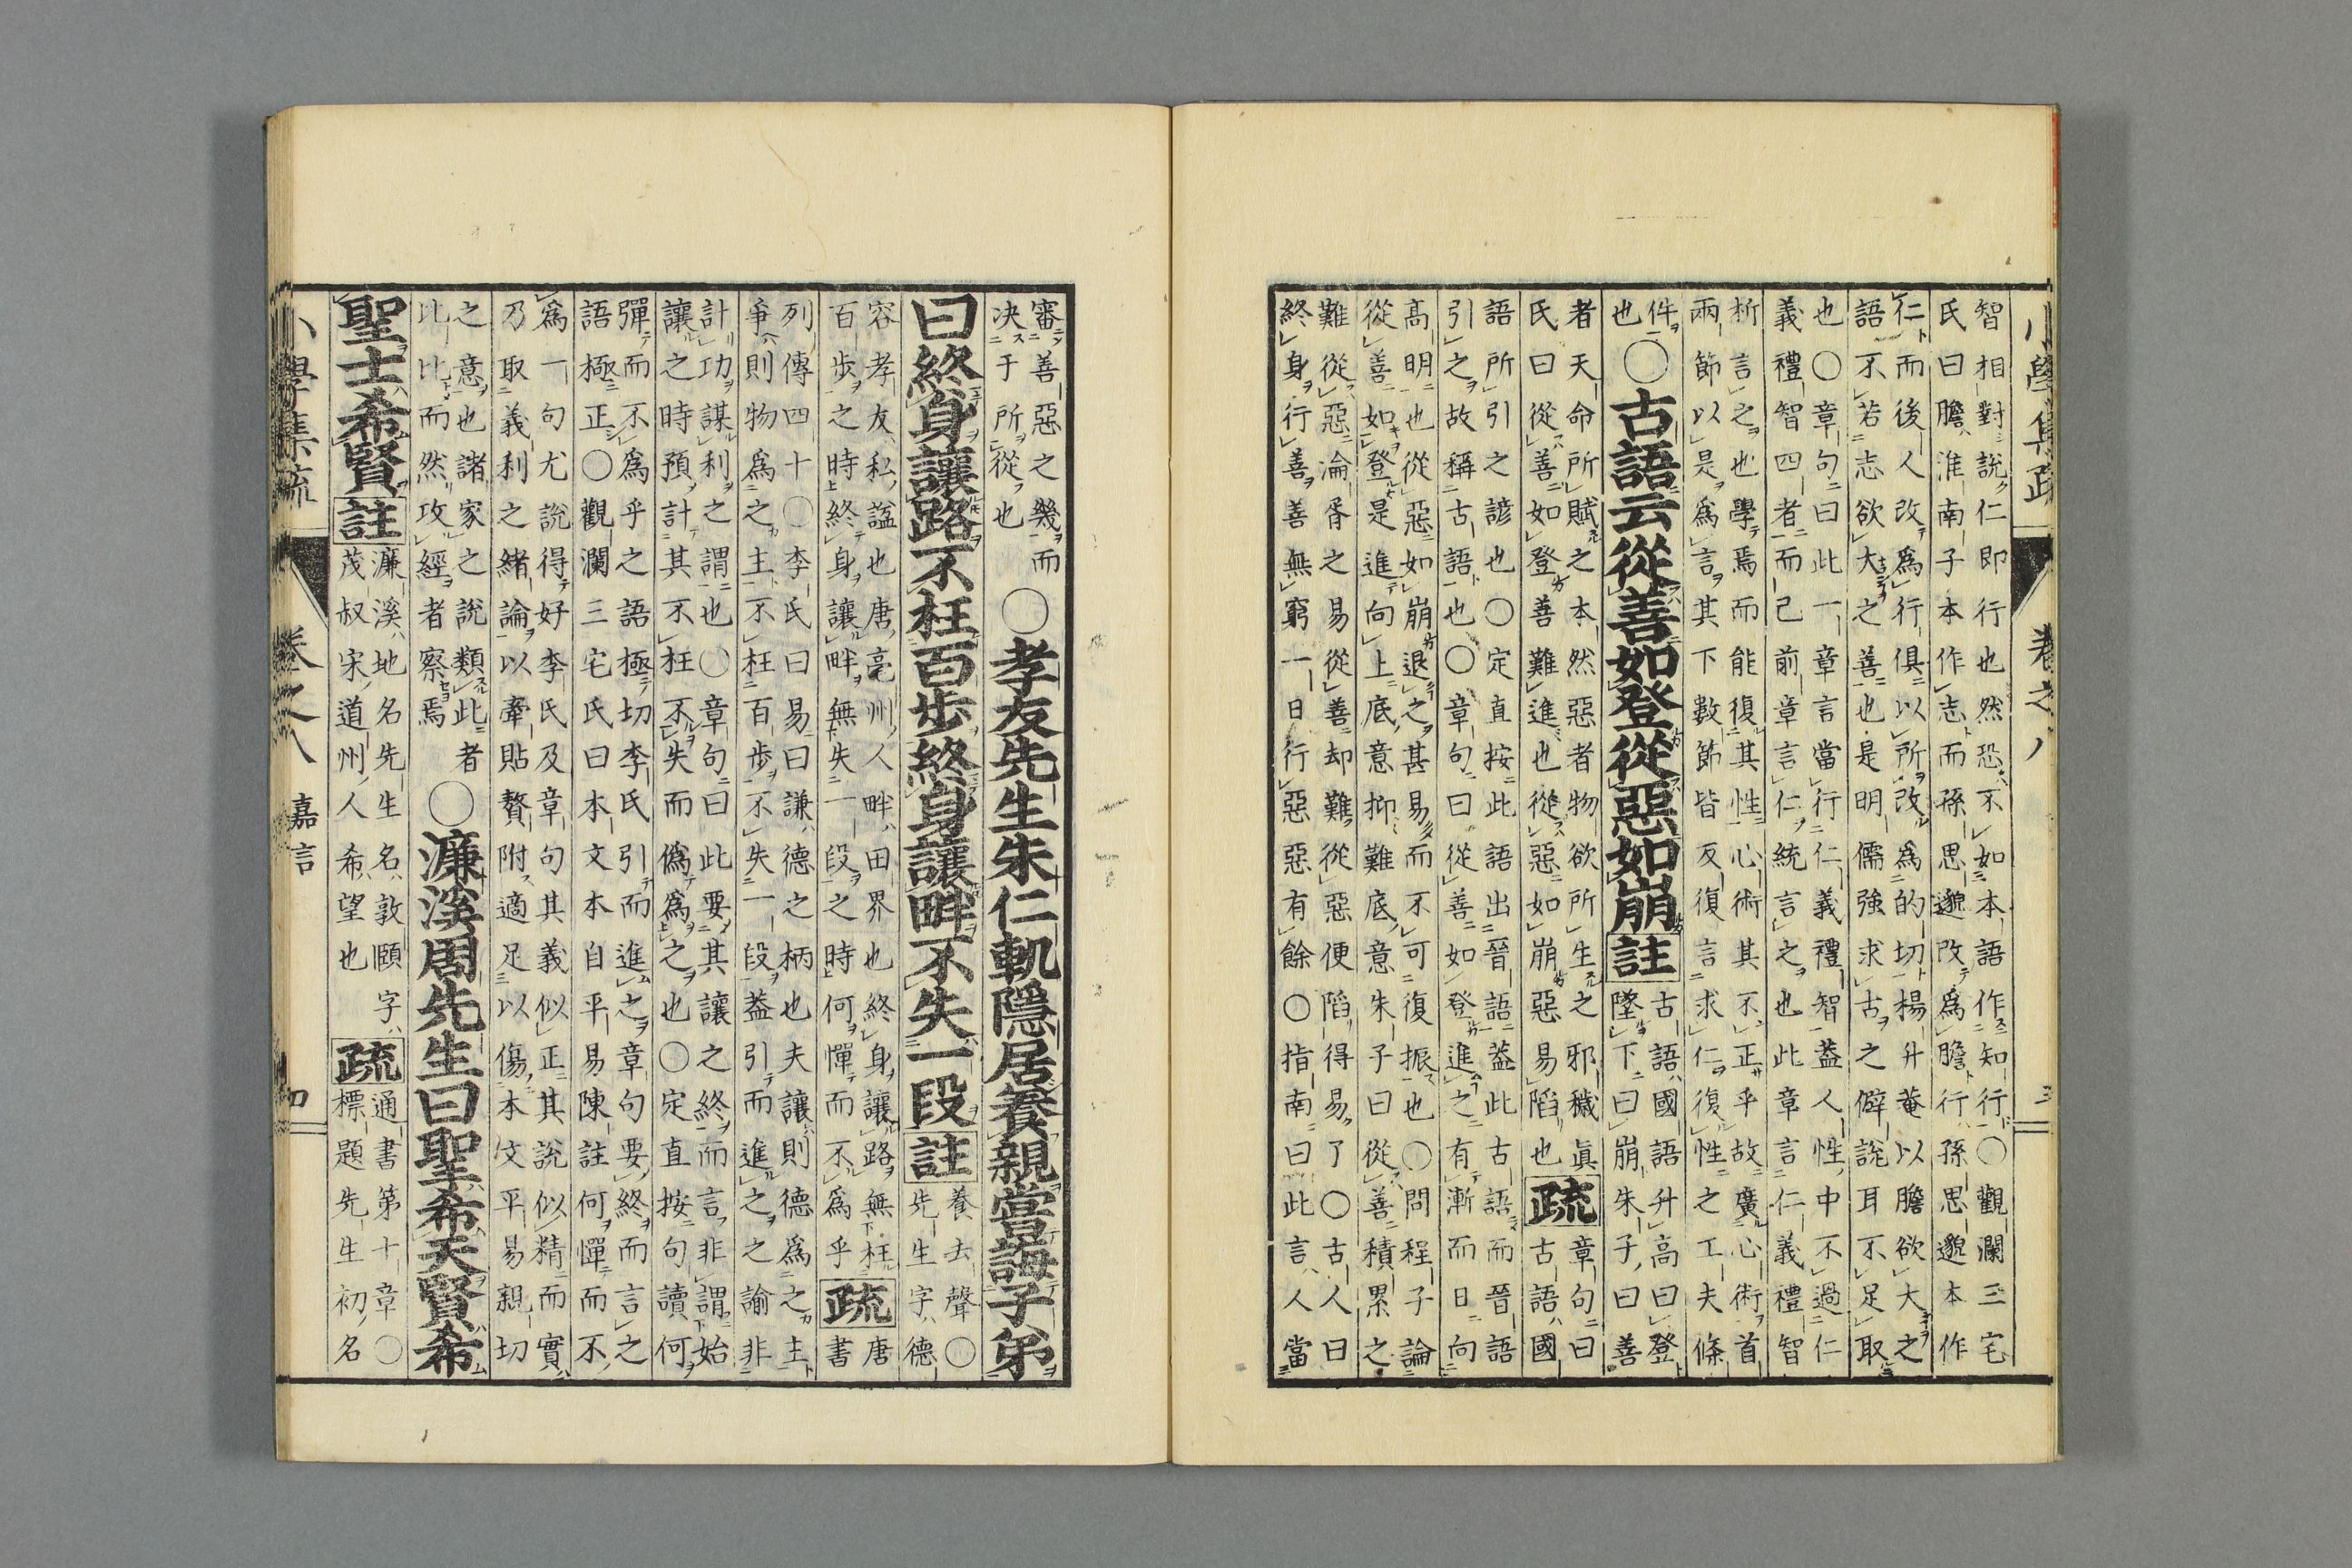 小學集疏 卷之八 三
智相對說仁即行也然恐不如本語作知行〇觀瀾三宅
氏曰膽淮南子本作志而孫思邈改爲膽行孫思邈本作
仁而後人改爲行俱以所改爲的切楊升菴以膽欲大之
語不若志欲大之善也是明儒強求古之僻說耳不足取
也〇章句曰此一章言當行仁義禮智蓋人性中不過仁
義禮智四者而已前章言仁統言之也此章言仁義禮智
析言之也學焉而能復其性心術其不正乎故廣心術首
兩節以是爲言其下數節皆反復言求仁復性之工夫條
件
也
〇古語云從善如登從惡如崩註
古語國語升高曰登
墜下曰崩朱子曰善
者天命所賦之本然惡者物欲所生之邪穢眞
氏曰從善如登善難進也從惡如崩惡易陷也
疏
章句曰
古語國
語所引之諺也〇定直按此語出晉語蓋此古語而晉語
引之故稱古語也〇章句曰從善如登進之有漸而日向
高明也從惡如崩退之甚易而不可復振也〇問程子論
從善如登是進向上底意抑難底意朱子曰從善積累之
難從惡淪胥之易從善却難從惡便陷得易了〇古人曰
終身行善善無窮一日行惡惡有餘〇指南曰此言人當
審善惡之幾而
決于所從也
〇孝友先生朱仁軌隱居養親嘗誨子弟
曰終身讓路不枉百步終身讓畔不失一段註
養去聲〇
先生字德
容孝友私諡也唐亳州人畔田界也終身讓路無枉
百步之時終身讓畔無失一段之時何憚而不爲乎
疏
唐
書
列傳四十〇李氏曰易曰謙德之柄也夫讓則德爲之主
爭則物爲之主不枉百步不失一段蓋引而進之之諭非
計功謀利之謂也〇章句曰此要其讓之終而言非謂始
讓之時預計其不枉不失而僞爲之也〇定直按句讀何
彈而不爲乎之語極切李氏引而進之章句要終而言之
語極正〇觀瀾三宅氏曰本文本自平易陳註何憚而不
爲一句尤說得好李氏及章句其義似正其說似精而實
乃取義利之緒論以牽貼贅附適足以傷本文平易親切
之意也諸家之說類此者
比比而然攻經者察焉
〇濂溪周先生曰聖希天賢希
聖士希賢註
濂溪地名先生名敦頤字
茂叔宋道州人希望也
疏
通書第十章〇
標題先生初名
小學集疏 卷之八 嘉言 四